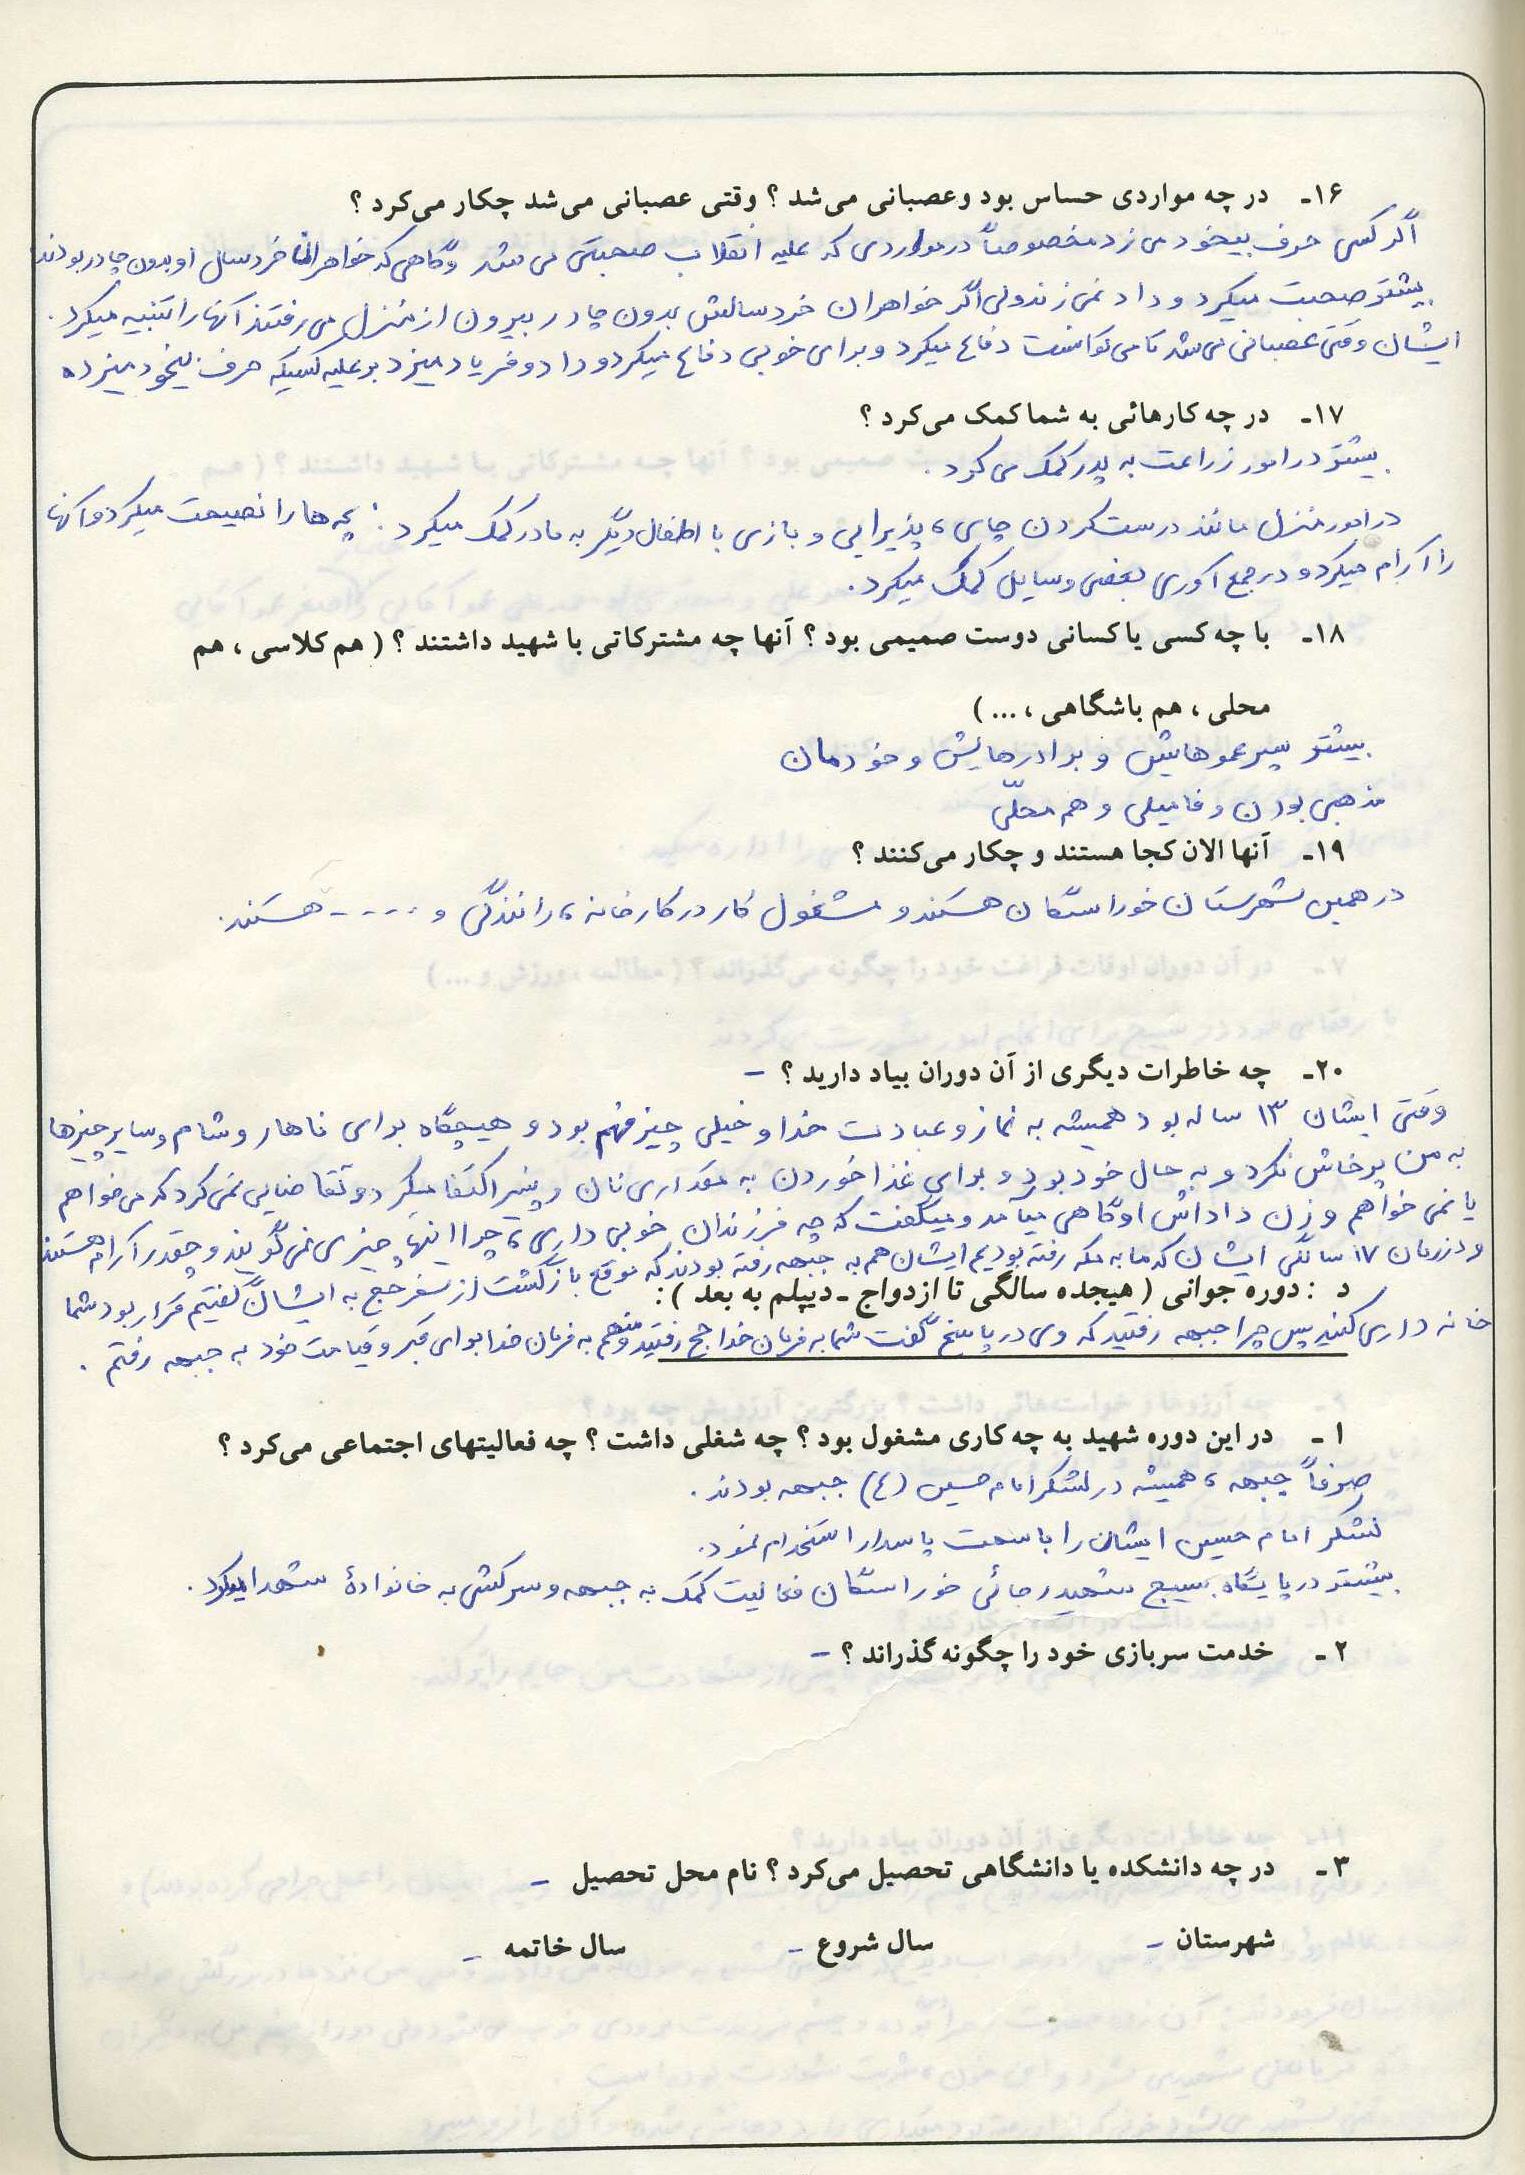 ۱۶ـ در چه مواردی حساس بود و عصبانی می‌شد ؟ وقتی عصبانی می‌شد چکار می‌کرد ؟
اگر کسی حرف بیخود می زد مخصوصاً در مواردی که علیه انقلاب صحبتی می شد و گاهی که خواهران خردسال او بدون چادر بودند
بیشتر صحبت میکرد و داد نمی زد ولی اگر خواهران خردسالش بدون چادر بیرون از منزل می رفتند آنها را تنبیه میکرد .
ایشان وقتی عصبانی می شد تا می توانست دفاع میکرد و برای خوبی دفاع میکرد و داد و فریاد میزد بر علیه کسیکه حرف بیخود میزده
۱۷ـ در چه کارهائی به شما کمک می‌کرد ؟
بیشتر در امور زراعت به پدر کمک می کرد .
در امور منزل مانند درست کردن چای ، پذیرایی و بازی با اطفال دیگر به مادر کمک میکرد . بچه ها را نصیحت میکرد و آنها
را آرام میکرد و در جمع آوری بعضی وسایل کمک میکرد .
۱۸ـ با چه کسی یا کسانی دوست صمیمی بود ؟ آنها چه مشترکاتی با شهید داشتند ؟ ( هم کلاسی ، هم
محلی ، هم باشگاهی ، ... )
بیشتر پسر عموهایش و برادرهایش و خودمان
مذهبی بودن و فامیلی و هم محلّی
۱۹ـ آنها الان کجا هستند و چکار می‌کنند ؟
در همین شهرستان خوراسگان هستند و مشغول کار در کارخانه ، رانندگی و ..... هستند .
۲۰ـ چه خاطرات دیگری از آن دوران بیاد دارید ؟ –
وقتی ایشان ۱۳ ساله بود همیشه به نماز و عبادت خدا و خیلی چیز فهم بود و هیچگاه برای ناهار و شام و سایر چیزها
به من پرخاش نکرد و به حال خود بود و برای غذا خوردن به مقداری نان و پنیر اکتفا میکرد و تقاضایی نمی کرد که می خواهم
یا نمی خواهم و زن داداش او گاهی میآمد و میگفت که چه فرزندان خوبی داری ، چرا اینها چیزی نمی گویند و چقدر آرام هستند
و در زمان ۱۷ سالگی ایشان که ما به مکه رفته بودیم ایشان هم به جبهه رفته بودند که موقع بازگشت از سفر حج به ایشان گفتیم قرار بود شما
د : دوره جوانی ( هیجده سالگی تا ازدواج ـ دیپلم به بعد ) :
خانه داری کنید پس چرا جبهه رفتید که وی در پاسخ گفت شما به فرمان خدا حج رفتید و منهم به فرمان خدا برای قبر و قیامت خود به جبهه رفتم .
۱ـ در این دوره شهید به چه کاری مشغول بود ؟ چه شغلی داشت ؟ چه فعالیتهای اجتماعی می‌کرد ؟
صرفاً جبهه ، همیشه در لشکر امام حسین (ع) جبهه بودند .
لشکر امام حسین ایشان را با سمت پاسدار استخدام نمود .
بیشتر در پایگاه بسیج شهید رجائی خوراسگان فعالیت کمک به جبهه و سرکشی به خانوادهٔ شهدا میکرد .
۲ـ خدمت سربازی خود را چگونه گذراند ؟ –
۳ـ در چه دانشکده یا دانشگاهی تحصیل می‌کرد ؟ نام محل تحصیل –
شهرستان – سال شروع – سال خاتمه –